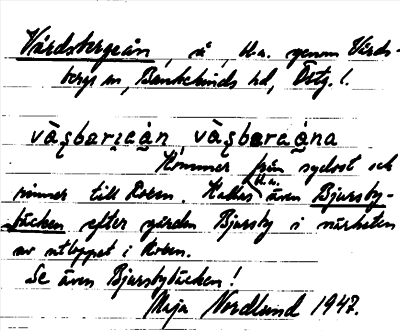 Vårdsbergsån, å, bl.a. genom Vårds-
bergs sn, Bankekinds hd, Östg. l.
våsbɑrɛɑ̀n, våsbɑrɛɑ̀na
Kommer från sydost och
rinner till Roxen. Kallas bl.a. även Bjursby-
bäcken efter gården Bjursby i närheten
av utloppet i Roxen.
Se även Bjursbybäcken!
Maja Nordlund 1947.